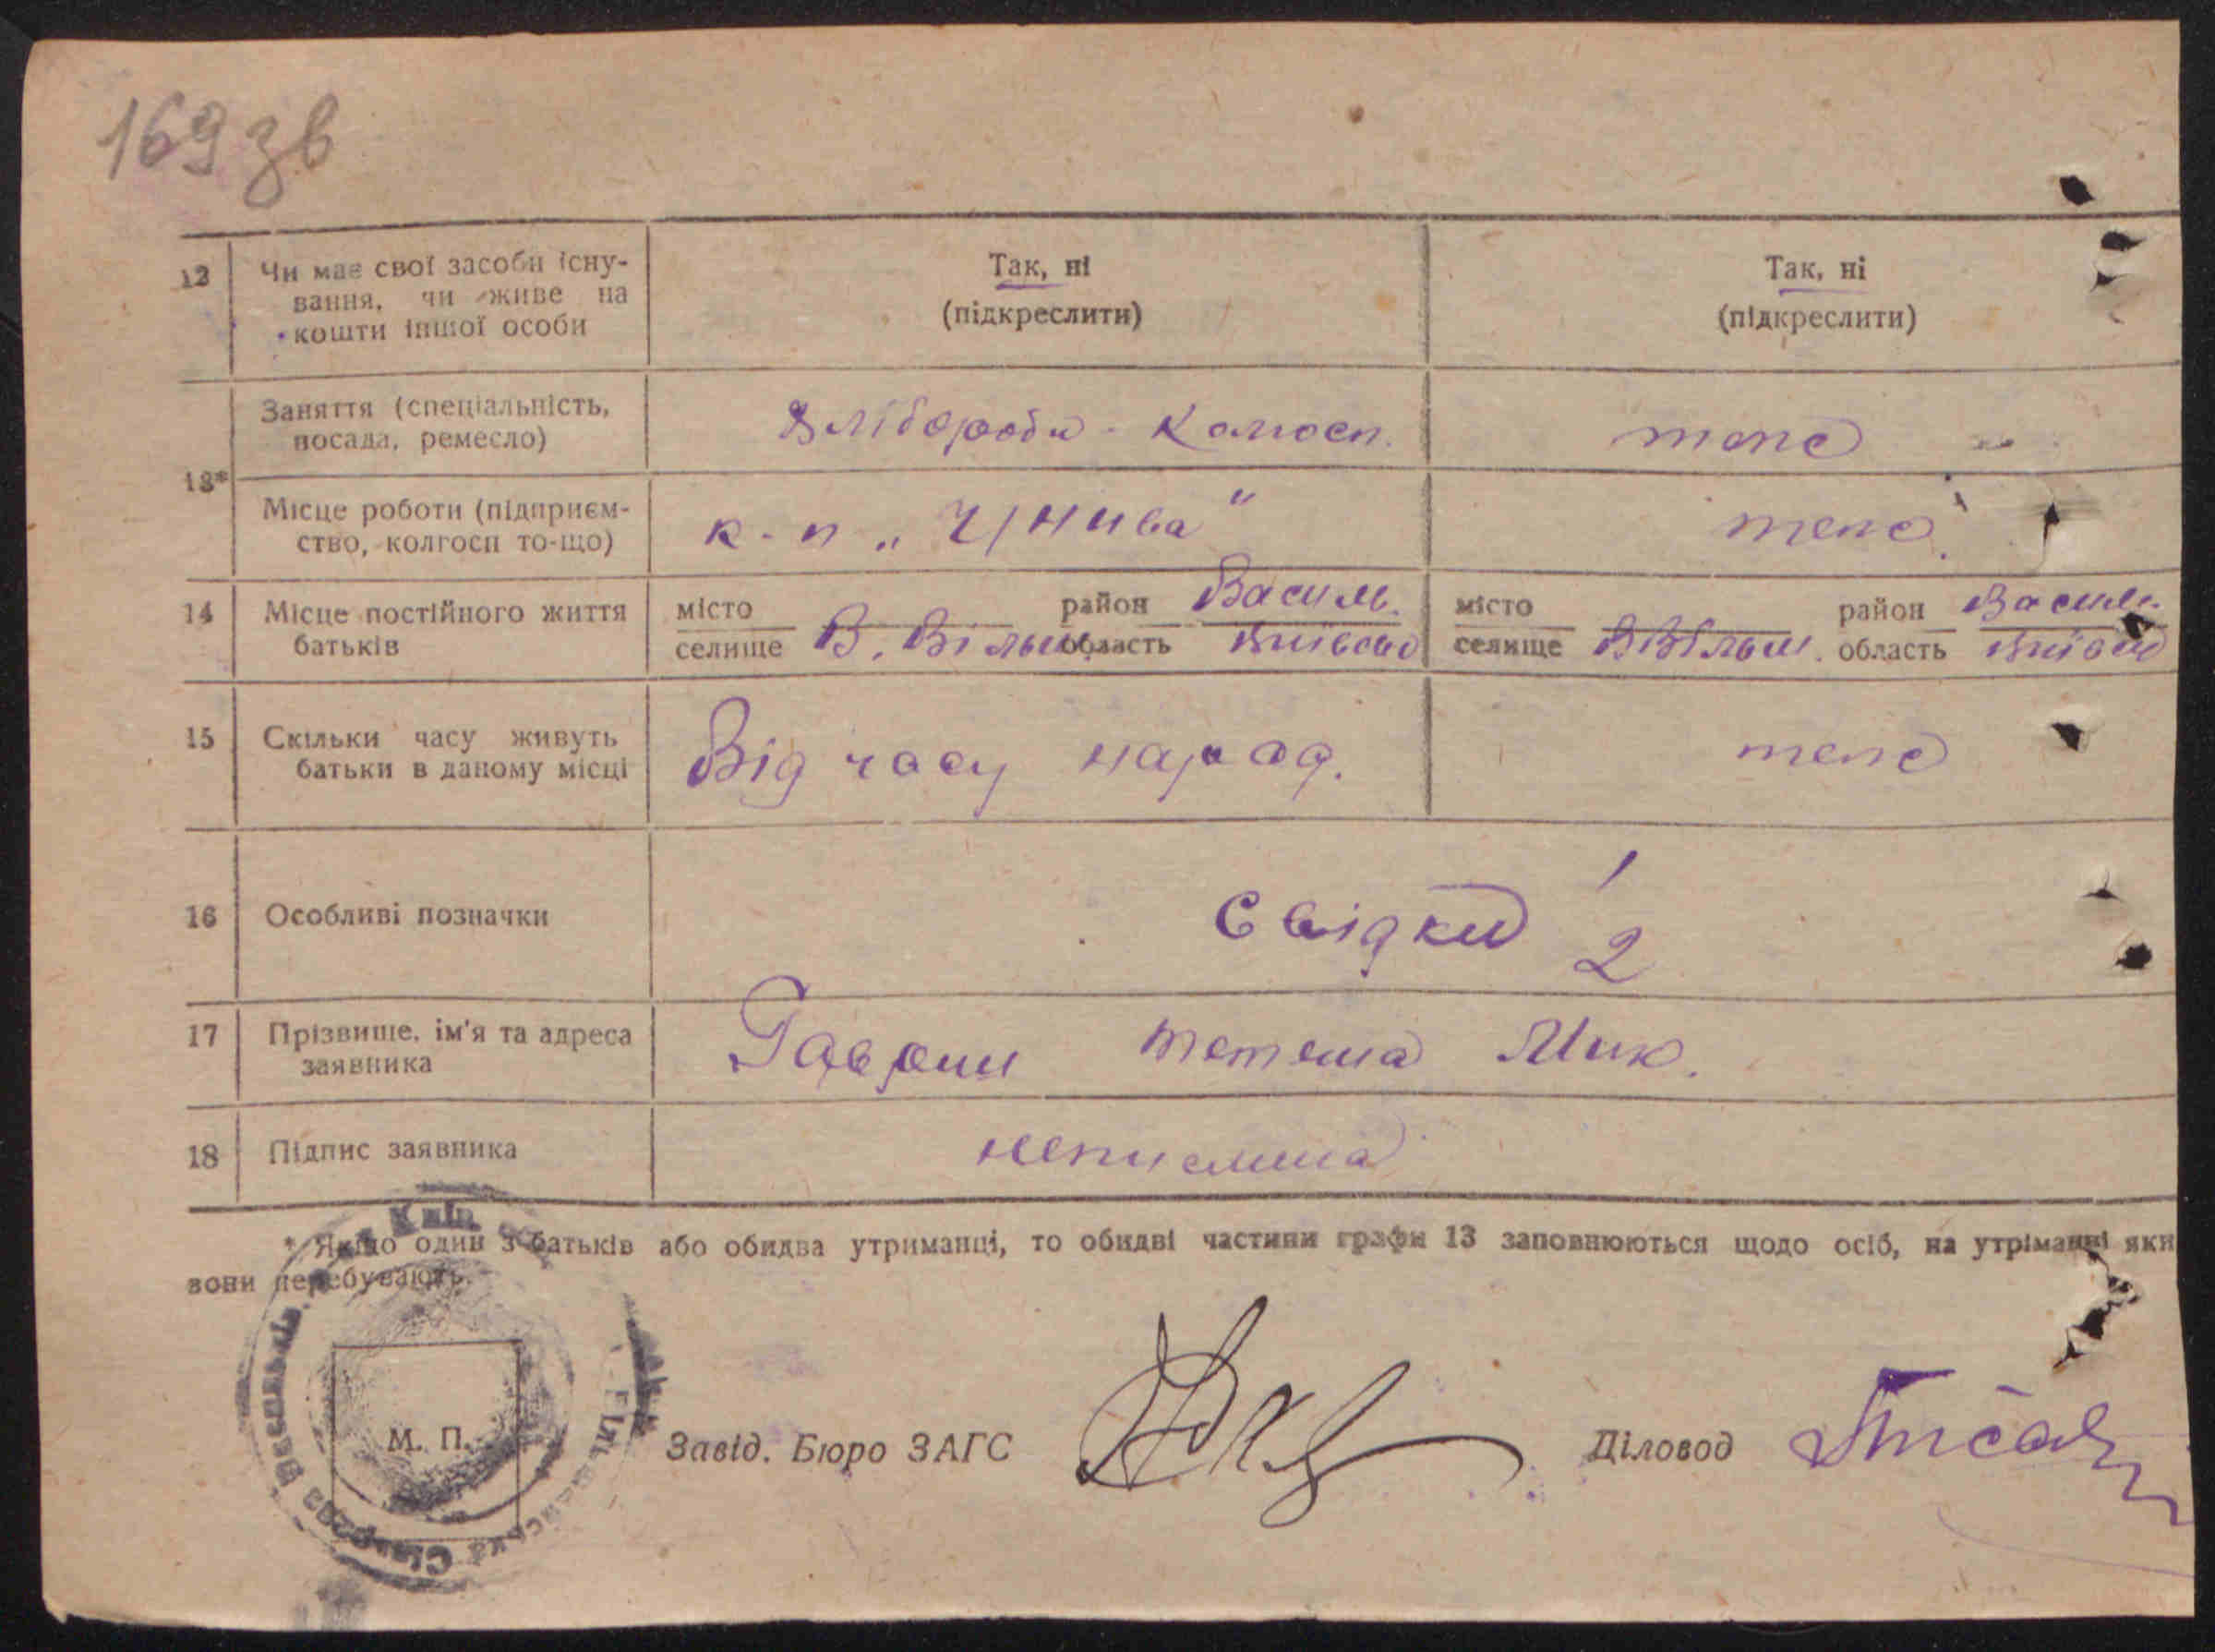 169 зв
12 Чи має свої засоби існу-
вання, чи живе на
кошти іншої особи
Так, ні
(підкреслити)
Так, ні
(підкреслити)
13*
Заняття (спеціальність,
посада, ремесло)
Хлібороби - Колгосп.
теж
Місце роботи (підприєм-
ство, колгосп то-що)
к-п „ Ч/Нива "
теж
14 Місце постійного життя
батьків
місто
селище
В. Вільш.
район Василь.
область Київськ
місто
селище
В Вільш.
район Василь.
область Київськ
15 Скільки часу живуть
батьки в даному місці
Від часу народ.
теж
16 Особливі позначки
Свідки 1
2
17 Прізвище, ім'я та адреса
заявника
Гаврош Тетяна Мик.
18 Підпис заявника
неписьмена
* Якщо один з батьків або обидва утриманці, то обидві частини графи 13 заповнюються щодо осіб, на утріманні яки
вони перебувають.
М. П.
Завід. Бюро ЗАГС
Діловод